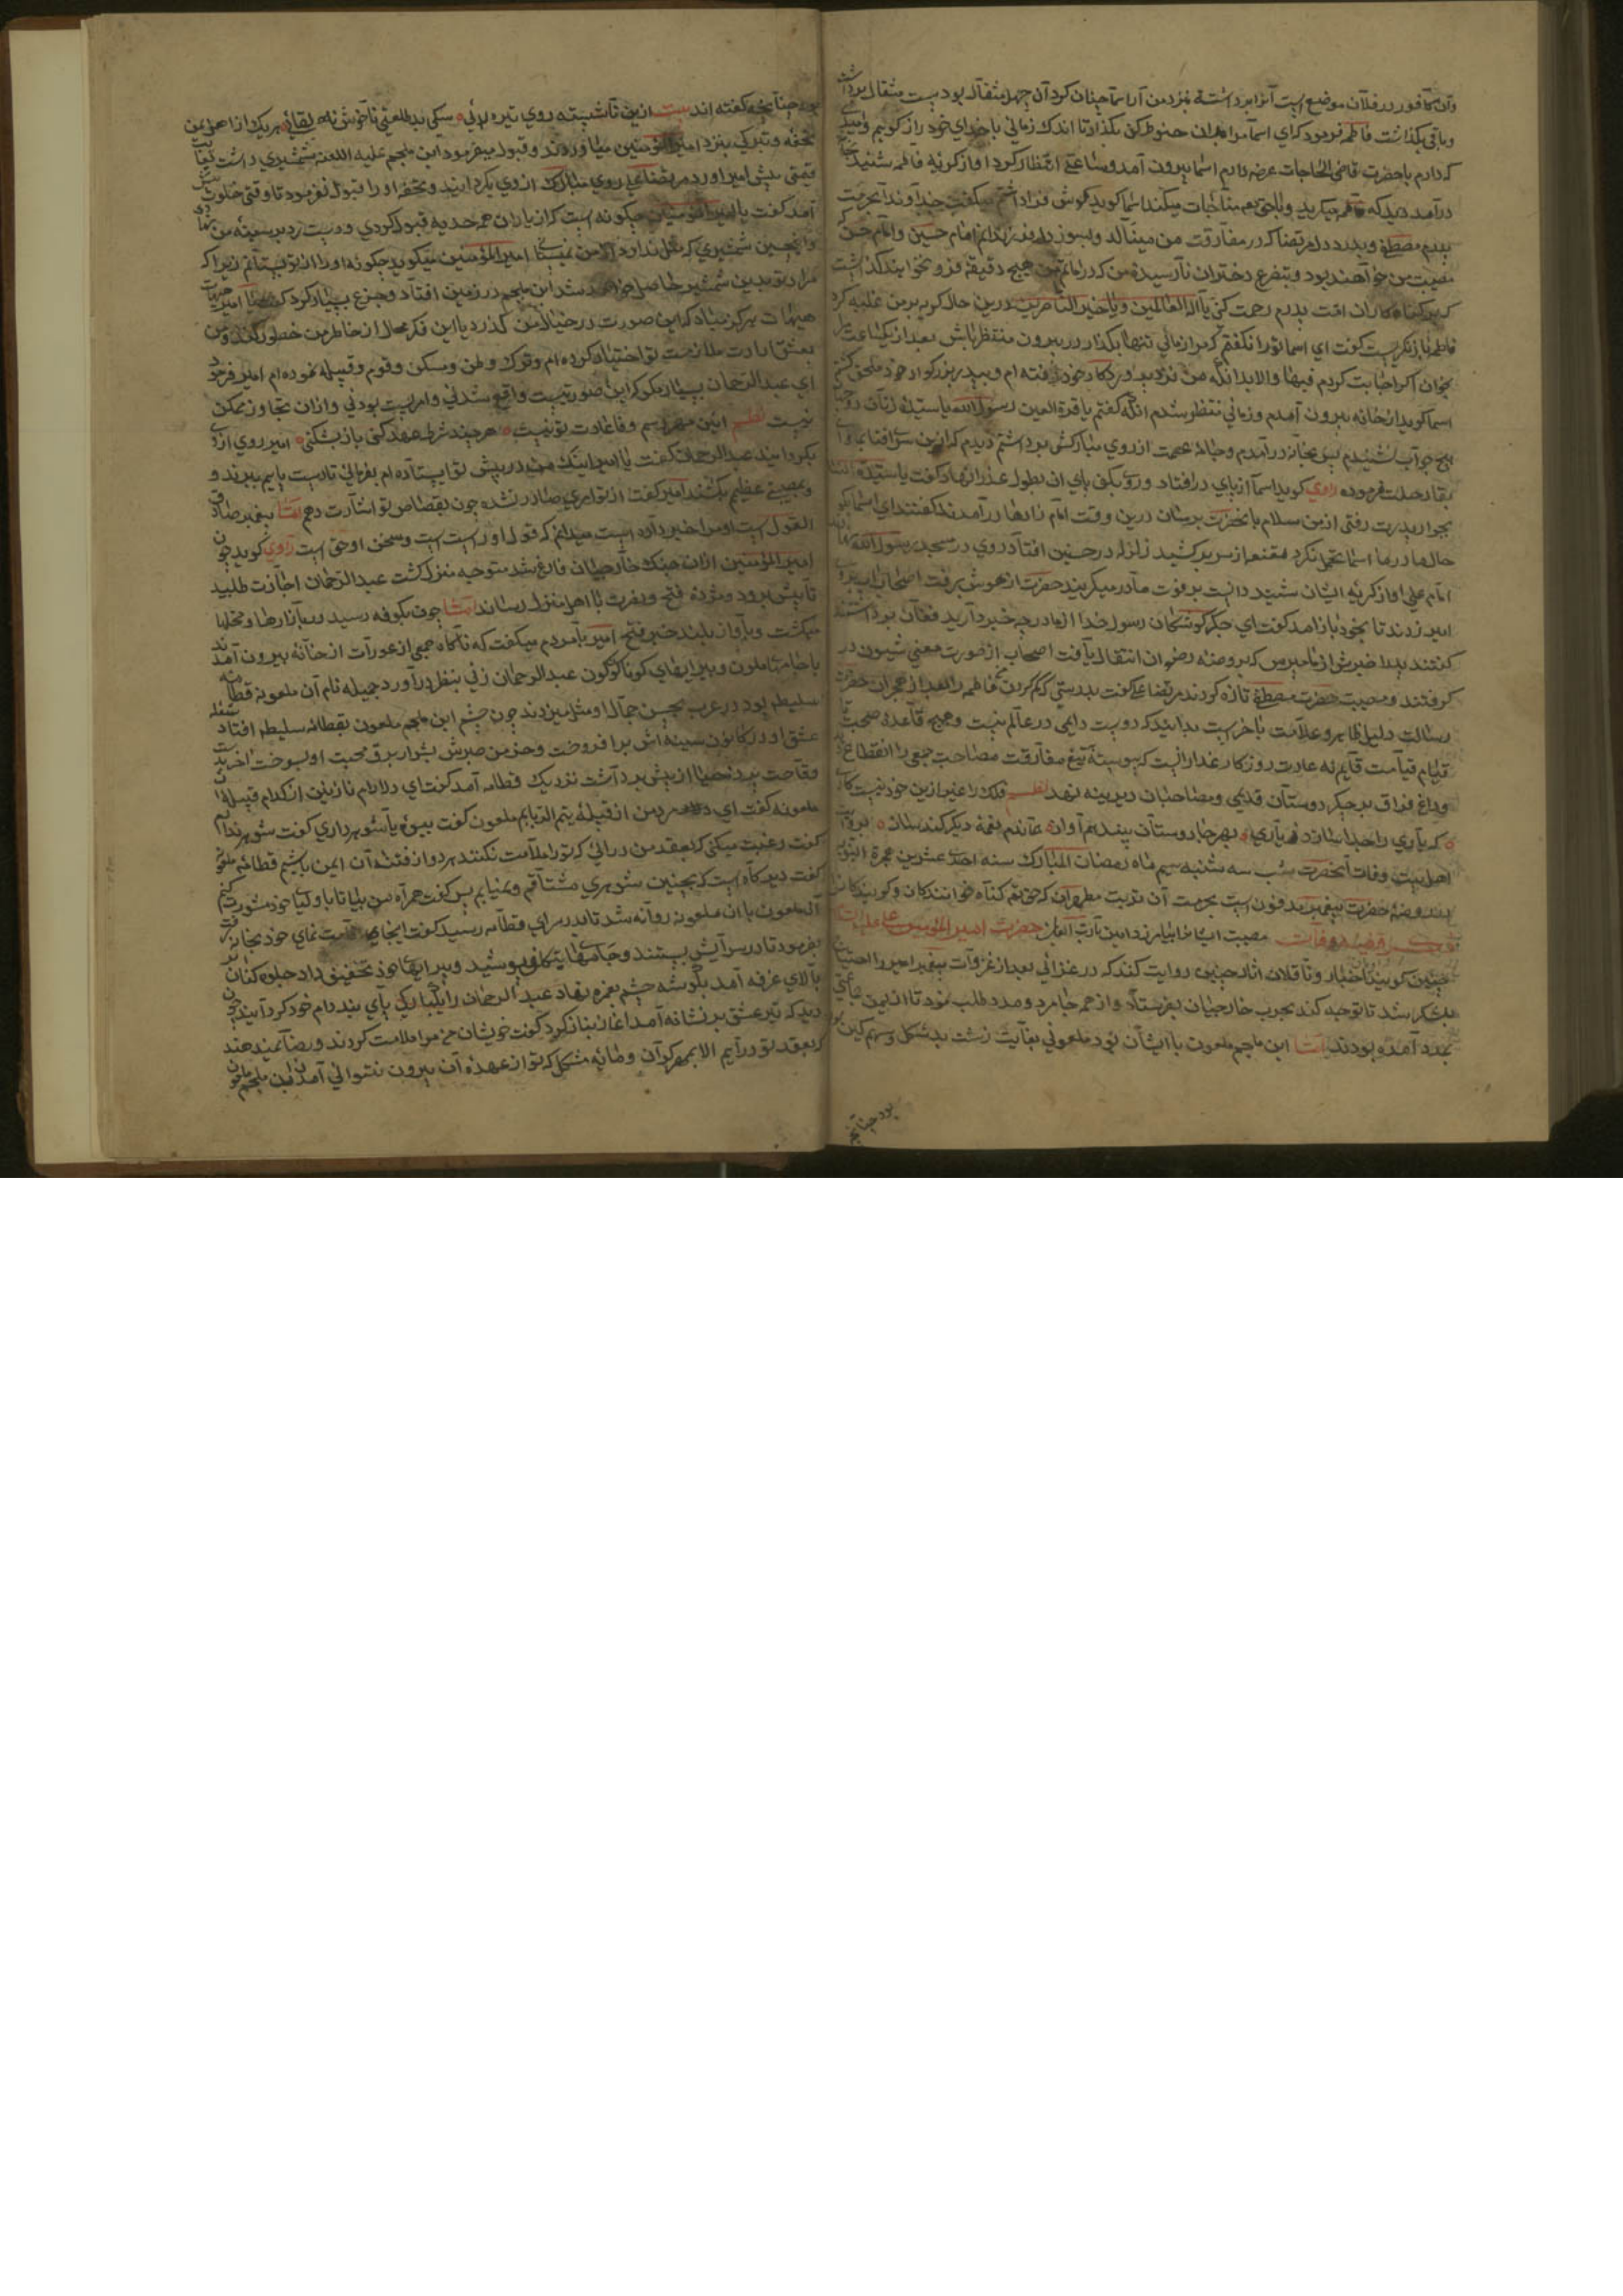 وآن کافور در فلان موضع است آنرا برداشته نزد من آر اسما چنان کرد آن چهل مثقال بود بیست مثقال برداشت
وباقی بگذاشت فاطمه فرمود که ای اسما مرا بدان حنوط کن بگذار تا اندک زمانی با خدای خود راز گویم
که دارم با حضرت قاضی الحاجات عرضه دارم اسما بیرون آمد وساعتی انتظار کرد اواز گریه فاطمه شنید
درآمد دید که فاطمه میگرید و مناجات میکند اسما گوید گوش فرا داشتم میگفت خداوندا بحرمت
پدرم مصطفی و بدرد دل مرتضا که در مفارقت من مینالد وبسوز فرزندانم امام حسین وامام حسن
مصیبت من خواهند بود وبتضرع دختران نارسیده من که در ماتم من هیچ دقیقه فرو نخواهند گذاشت
که بر گناهکاران امت پدرم رحمت کنی یا اله العالمین ویا خیر الناصرین درین حال گریه بر من غلبه کرد
فاطمه باز نگریست گفت ای اسما ترا نگفتم که مرا زمانی تنها بگذار و در بیرون منتظر باش بعد از یکساعت
بخوان اگر اجابت کردم فبها والا بدانکه من نزدیک پروردکار خود رفته ام وبپدر بزرگوار خود ملحق گشتم
اسما گوید از خانه بیرون آمدم وزمانی منتظر شدم آنکه گفتم یا قرة العین رسول الله یا سیدة زنان
هیچ جواب نشنیدم پس بخانه درآمدم از روی مبارکش برداشتم دیدم که ازین سرای فنا
بقا رحلت فرموده راوی گوید اسما از پای درافتاد وروی بکف پای آن بطول عذرا نهاد وگفت یا سیدة النسا
بجوار پدرت رفتی از من سلام بانحضرت برسان درین وقت امام زادها درآمدند گفتند ای اسما بگو
حال مادر ما اسما تحمل نکرد مقنعه از سر برکشید زلزله در حسنین افتاد روی در مسجد رسول الله نهادند
امام علی اواز گریه ایشان شنید دانست بر فوت مادر میگریند حضرت از هوش برفت اصحاب آب بر روی
امیر زدند تا بخود باز آمد گفت ای جگر گوشکان رسول خدا از مادر چه خبر دارید فغان برداشتند
گفتند پدرا خبرش از ما مپرس که بروضه رضوان انتقال یافت اصحاب از صورت معنی شیون در
گرفتند ومصیبت حضرت مصطفی تازه کردند مرتضا علی گفت بدرستی که گم کردن فاطمه را بعد از هجران حضرت
رسالت دلیل ظاهر وعلامت باهر است بدانید که دوست دایمی در عالم نیست وهیچ قاعده صحبت تا
قیام قیامت قایم نه عادت روزکار غدار آنست که پیوسته تیغ مفارقت مصاحبت جمعی را انقطاع دهد
وداغ فراق بر جگر دوستان قدیمی ومصاحبان دیرینه نهد نظم فلک را غیر ازین خود نیست کاری
که یاری را جدا سازد ز یاری بهر جا دوستان بیند هم آواز بماندم نغمه دیگر کند ساز بروایت
اهل بیت وفات آنحضرت شب سه شنبه سیم ماه رمضان المبارک سنه احدی عشرین هجرة النبوی
ودر روضه حضرت پیغمبر مدفون است بحرمت آن تربت مطهر آن که حق تم گناه خوانندکان وگویندکان
مصیبت ایشان را بیامرزد امین یا رب العالمین حضرت امیر المؤمنین علی علیه السلام
چنین گویند که اخبار وناقلان اثار چنین روایت کنند که در غزائی بعد از غزوات پیغمبر امیر را احتیاج
بلشکر شد تا توجه کند بحرب خارجیان بفرستاد واز همه جا مرد ومدد طلب نمود تا از یمن جماعتی
بمدد آمده بودند اما ابن ملجم ملعون با ایشان بود ملعونی بغایت زشت بد شکل وسهم گین
بود چنانچه
بود چنانچه گفته اند بیت ازین ناشسته روی تیره رائی سگی بد طلعتی ناخوش لقائی هریک از اهل یمن
تحفه وتبرکی بنزد امیر المؤمنین می آوردند وقبول میفرمود ابن ملجم علیه اللعنه شمشیری داشت بغایت
قیمتی پیش امیر آورد مرتضا علی روی مبارک از وی بگردانید وتحفه او را قبول نفرمود تا وقتی خلوت
آمد گفت یا امیر المؤمنین چگونه است که از یاران همه هدیه قبول کردی ودست رد بر سینه من نهادی
واینچنین شمشیری که مثل ندارد از من نمیستانی امیر المؤمنین میگوید چگونه او را از تو بستانم زیرا که
مراد تو بدین شمشیر حاصل خواهد شد ابن ملجم در زمین افتاد وجزع بسیار کرد گفت یا امیر
هیهات هرگز مباد که این صورت در خیال من گذرد یا این فکر محال از خاطر من خطور کند من
بعشق ارادت ملازمت تو اختیار کرده ام وترک وطن ومسکن وقوم وقبیله نموده ام امیر فرمود
ای عبد الرحمان بسیار مگو که این صورتیست واقع شدنی وامریست بودنی وازان تجاوز ممکن
نیست نظم آیین مهر ورسم وفا عادت تو نیست هر چند شرط عهد کنی باز بشکنی امیر روی از وی
بگردانید عبد الرحمان گفت یا امیر اینک من در پیش تو ایستاده ام بفرمای تا دست پایم ببرند و
بمصیبتی عظیم بکشند امیر گفت از تو امری صادر نشده چون بقصاص تو اشارت دهم اما پیغمبر صادق
القول است او مرا خبر داده است میدانم که قول او راست است وسخن او حق است راوی گوید چون
امیر المؤمنین ازان جنگ خارجیان فارغ شد متوجه منزل گشت عبد الرحمان اجازت طلبید
تا پیش برود ومژده فتح ونصرت با اهل منزل رساند اما چون بکوفه رسید در بازارها ومحلها
میگشت وبآواز بلند خبر فتح امیر بامردم میگفت که ناگاه جمعی از عورات از خانه بیرون آمدند
با جامهای ملون وپیرایهای گوناگون عبد الرحمان زنی بنظر درآورد جمیله نام آن ملعونه قطامه
سلیطه بود در عرب بحسن جمال او مثل میزدند چون چشم ابن ملجم ملعون بقطامه سلیطه افتاد شعله
عشق او در کانون سینه اش برافروخت وخرمن صبرش بشرار برق محبت او بسوخت
وقاحت پرده حیا از پیش برداشت نزدیک قطامه آمد گفت ای دلارام نازنین از کدام قبیله
ملعونه گفت ای من از قبیله یتم الربابم ملعون گفت بیوه یا شوهر داری گفت شوهر ندارم
گفت رغبت میکنی که بعقد من درائی که ترا ملامت نکنند هر دو از فتنه آن ایمن باشیم قطامه ملعونه
گفت دیر گاه است که بچنین شوهری مشتاقم بس گفت همراه من بیا تا با اولیا خود مشورت کنم
آن ملعون با ان ملعونه روانه شد تا بدر سرای قطامه رسید گفت اینجا باش خود بخانه رفت
بفرمود تا در سرایش ببستند وجامهای بتکلف پوشید وپیرایهای خود جلوه کنان
بالای غرفه آمد بگوشه چشم بغمزه بنهاد عبد الرحمان را یکبارگی پای بند دام خود گردانید چون
دید که تیر عشق بر نشانه آمد اغاز بناز کرد گفت خویشان من مرا ملامت کردند ورضا نمیدهند
که بعقد تو درآیم الا بمهر گران ومایه مشکل که تو از عهده آن بیرون نتوانی آمدن ابن ملجم ملعون